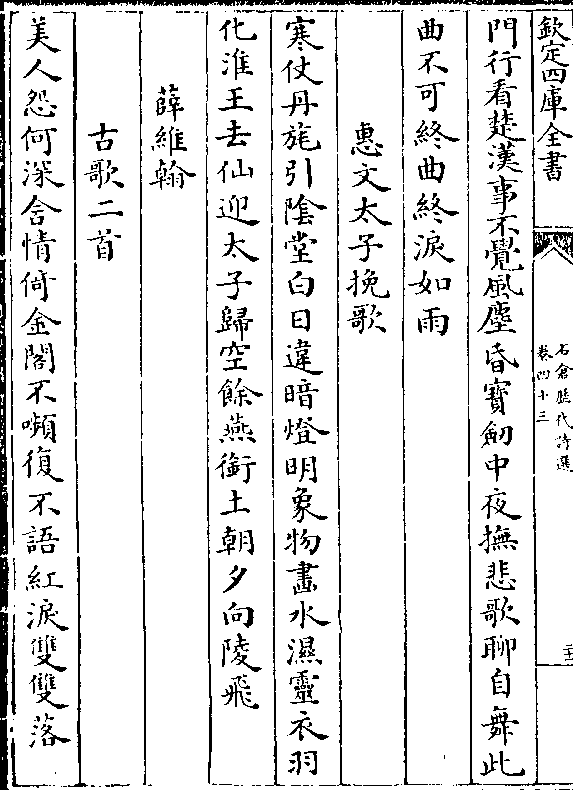 欽定四庫全書
石倉歷代詩選
卷四十三
門行看楚漢事不覺風塵昏寶劔中夜撫悲歌聊自舞此
曲不可終曲終淚如雨
惠文太子挽歌
寒仗丹旐引陰堂白日違暗燈明象物畫水濕靈衣羽
化淮王去仙迎太子歸空餘燕銜土朝夕向陵飛
薛維翰
古歌二首
美人怨何深含情倚金閣不嚬復不語紅淚雙雙落